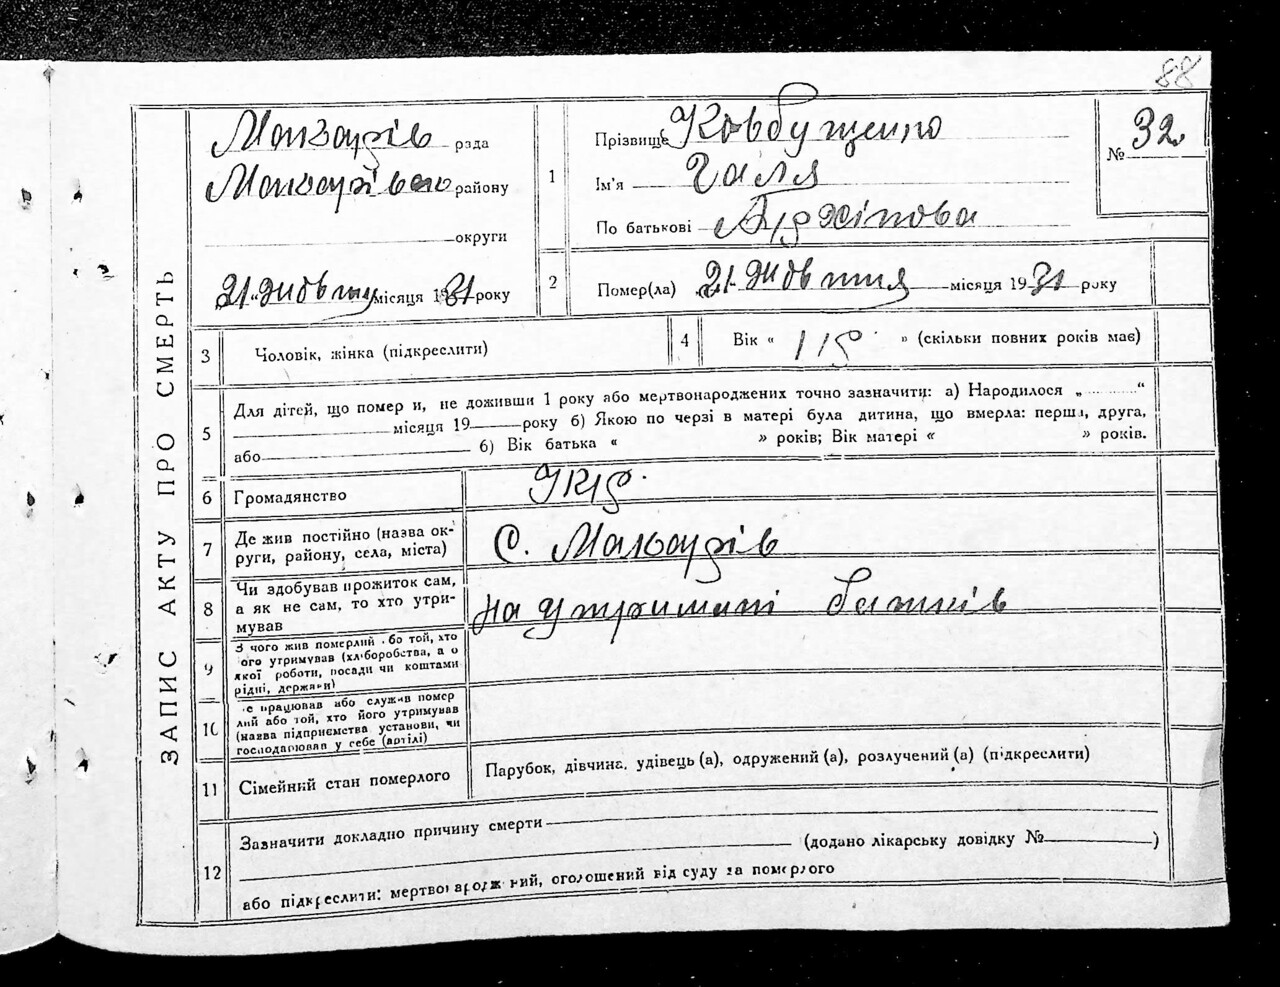 88
ЗАПИС АКТУ ПРО СМЕРТЬ
Макарів рада
Макарівсь району
округи
21 " жовтня місяця 1931 року
1
Прізвище Ковбущенко
Ім'я Галя
По батькові Архіпова
№ 32
2
Помер(ла) „21" жовтня місяця 1931 року
3
Чоловік, жінка (підкреслити)
4
Вік « 1 р. » (скільки повних років має)
5
Для дітей, що помер и, не доживши 1 року або мертвонароджених точно зазначити: а) Народилося „ “
місяця 19 року б) Якою по черзі в матері була дитина, що вмерла: перша, друга,
або б) Вік батька « » років; Вік матері « » років.
6
Громадянство
Укр.
7
Де жив постійно (назва ок-
руги, району, села, міста)
С. Макарів
8
Чи здобував прожиток сам,
а як не сам, то хто утри-
мував
на утримані батьків
9
З чого жив померлий або той, хто
ого утримував (хліборобства, а о
якої роботи, посади чи коштами
рідні, держави)
10
е працював або служив помер
лий або той, хто його утримував
(назва підприємства установи, чи
господарював у себе (артілі)
11
Сімейний стан померлого
Парубок, дівчина, удівець (а), одружений (а), розлучений (а) (підкреслити)
12
Зазначити докладно причину смерти
(додано лікарську довідку № )
або підкреслити: мертвонароджений, оголошений від суду за померлого